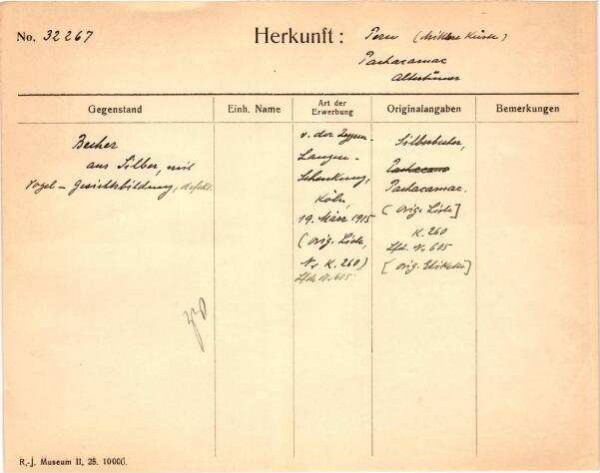 No. 32267
Herkunft: Peru (Mittlere Küste)
Pachacamac
Altertümer
Gegenstand
Einh. Name
Art der
Erwerbung
Originalangaben
Bemerkungen
Becher
aus Silber, mit
Vogel-Gesichtsbildung, defekt.
v. der Zypen-
Langen-
Schenkung,
Köln,
19. März 1915
(orig. Liste,
No K. 260)
Lfde No. 605
Silberbecher,
Pachacama
Pachacamac.
(orig. Liste]
K. 260
Lfd. No 605
[orig. Etikette]
R.-J. Museum II, 25. 10000.